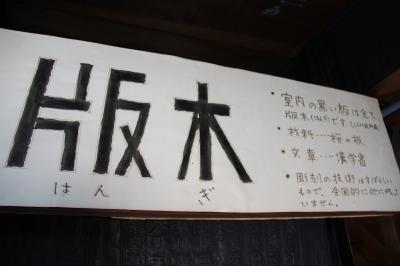 版木
はんぎ
・室内の黒い板は全て
版木(はんぎ)です
・材料……桜の板
・文章……漢学書
・彫刻の技術はすばらしい
もので、全国的に他に残って
いません。